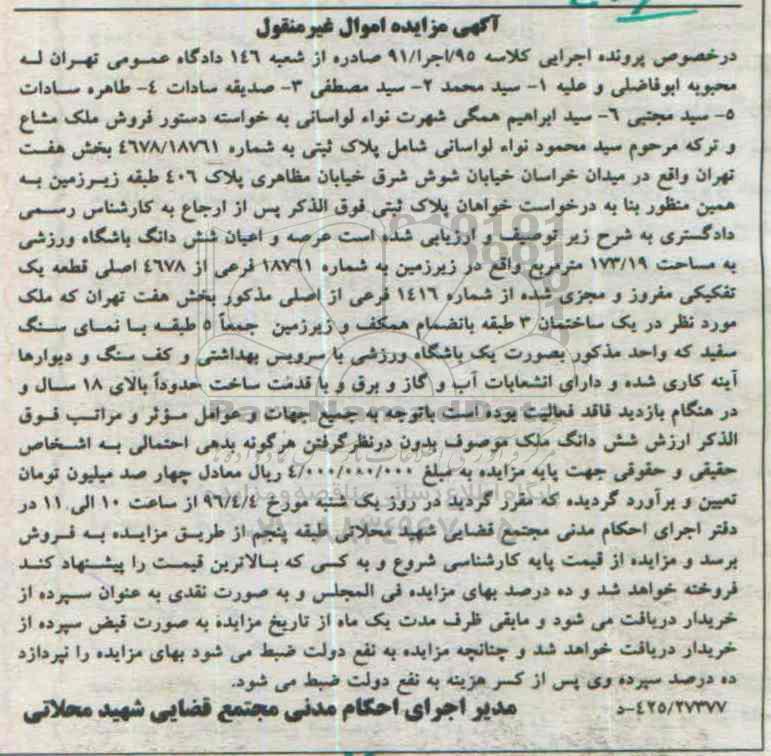 آگهی مزایده اموال غیرمنقول
درخصوص پرونده اجرایی کلاسه ۹۵/اجرا/۹۱ صادره از شعبه ۱۴۶ دادگاه عمومی تهران له
محبوبه ابوفاضلی و علیه ۱- سید محمد ۲- سید مصطفی ۳- صدیقه سادات ۴- طاهره سادات
۵- سید مجتبی ۶- سید ابراهیم همگی شهرت نواء لواسانی به خواسته دستور فروش ملک مشاع
و ترکه مرحوم سید محمود نواء لواسانی شامل پلاک ثبتی به شماره ۴۶۷۸/۱۸۷۶۱ بخش هفت
تهران واقع در میدان خراسان خیابان شوش شرق خیابان مظاهری پلاک ۴۰۶ طبقه زیرزمین به
همین منظور بنا به درخواست خواهان پلاک ثبتی فوق الذکر پس از ارجاع به کارشناس رسمی
دادگستری به شرح زیر توصیف و ارزیابی شده است عرصه و اعیان شش دانگ باشگاه ورزشی
به مساحت ۱۷۳/۱۹ مترمربع واقع در زیرزمین به شماره ۱۸۷۶۱ فرعی از ۴۶۷۸ اصلی قطعه یک
تفکیکی مفروز و مجزی شده از شماره ۱۴۱۶ فرعی از اصلی مذکور بخش هفت تهران که ملک
مورد نظر در یک ساختمان ۳ طبقه بانضمام همکف و زیرزمین جمعاً ۵ طبقه با نمای سنگ
سفید که واحد مذکور بصورت یک باشگاه ورزشی با سرویس بهداشتی و کف سنگ و دیوارها
آینه کاری شده و دارای انشعابات آب و گاز و برق و با قدمت ساخت حدوداً بالای ۱۸ سال و
در هنگام بازدید فاقد فعالیت بوده است باتوجه به جمیع جهات و عوامل مؤثر و مراتب فوق
الذکر ارزش شش دانگ ملک موصوف بدون درنظرگرفتن هرگونه بدهی احتمالی به اشخاص
حقیقی و حقوقی جهت پایه مزایده به مبلغ ۴/۰۰۰/۰۰۰/۰۰۰ ریال معادل چهار صد میلیون تومان
تعیین و برآورد گردیده که مقرر گردید در روز یک شنبه مورخ ۹۶/۴/۴ از ساعت ۱۰ الی ۱۱ در
دفتر اجرای احکام مدنی مجتمع قضایی شهید محلاتی طبقه پنجم از طریق مزایده به فروش
برسد و مزایده از قیمت پایه کارشناسی شروع و به کسی که بالاترین قیمت را پیشنهاد کند
فروخته خواهد شد و ده درصد بهای مزایده فی المجلس و به صورت نقدی به عنوان سپرده از
خریدار دریافت می شود و مابقی ظرف مدت یک ماه از تاریخ مزایده به صورت قبض سپرده از
خریدار دریافت خواهد شد و چنانچه مزایده به نفع دولت ضبط می شود بهای مزایده را نپردازد
ده درصد سپرده وی پس از کسر هزینه به نفع دولت ضبط می شود.
۴۲۵/۲۷۳۷۷-د
مدیر اجرای احکام مدنی مجتمع قضایی شهید محلاتی